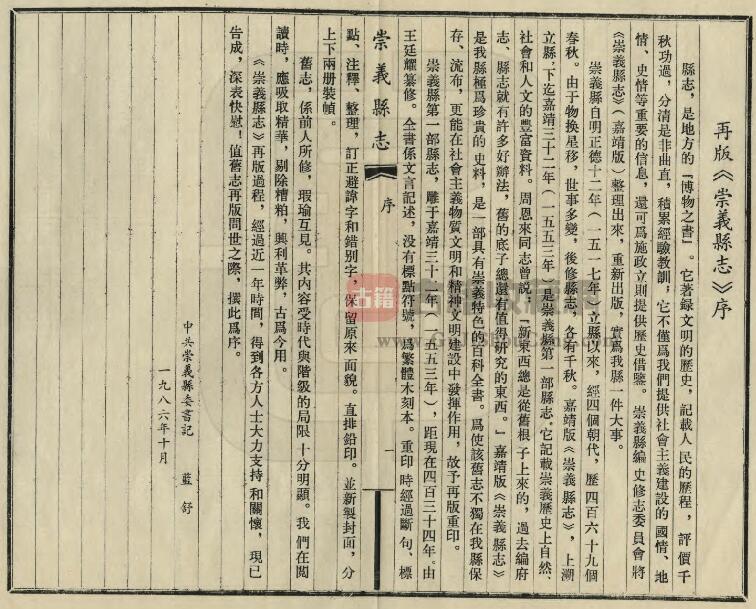 再版《崇義縣志》序
縣志，是地方的『博物之書』。它著録文明的歷史，記載人民的歷程，評價千
秋功過，分清是非曲直，積累經驗教訓，它不僅爲我們提供社會主義建設的國情、地
情、史情等重要的信息，還可爲施政立則提供歷史借鑒。崇義縣編史修志委員會將
《崇義縣志》（嘉靖版）整理出來，重新出版，實爲我縣一件大事。
崇義縣自明正德十二年（一五一七年）立縣以來，經四個朝代，歷四百六十九個
春秋。由于物换星移，世事多變，後修縣志，各有千秋。嘉靖版《崇義縣志》，上溯
立縣，下迄嘉靖三十二年（一五五三年）是崇義縣第一部縣志。它記載崇義歷史上自然、
社會和人文的豐富資料。周恩來同志曾説：「新東西總是從舊根子上來的，過去編府
志、縣志就有許多好辦法，舊的底子總還有值得研究的東西。」嘉靖版《崇義縣志》
是我縣極爲珍貴的史料，是一部具有崇義特色的百科全書。爲使該舊志不獨在我縣保
存、流布，更能在社會主義物質文明和精神文明建設中發揮作用，故予再版重印。
崇義縣第一部縣志，雕于嘉靖三十二年（一五五三年），距現在四百三十四年。由
王廷耀纂修。全書係文言記述，没有標點符號，爲繁體木刻本。重印時經過斷句、標
崇義縣志
序
一
點、注釋、整理，訂正避諱字和錯别字，保留原來面貌。直排鉛印。並新製封面，分
上下兩册裝幀。
舊志，係前人所修，瑕瑜互見。其内容受時代與階級的局限十分明顯。我們在閲
讀時，應吸取精華，剔除糟粕，興利革弊，古爲今用。
《崇義縣志》再版過程，經過近一年時間，得到各方人士大力支持和關懷，現已
告成，深表快慰！值舊志再版問世之際，撰此爲序。
中共崇義縣委書記　藍舒
一九八六年十月
古籍